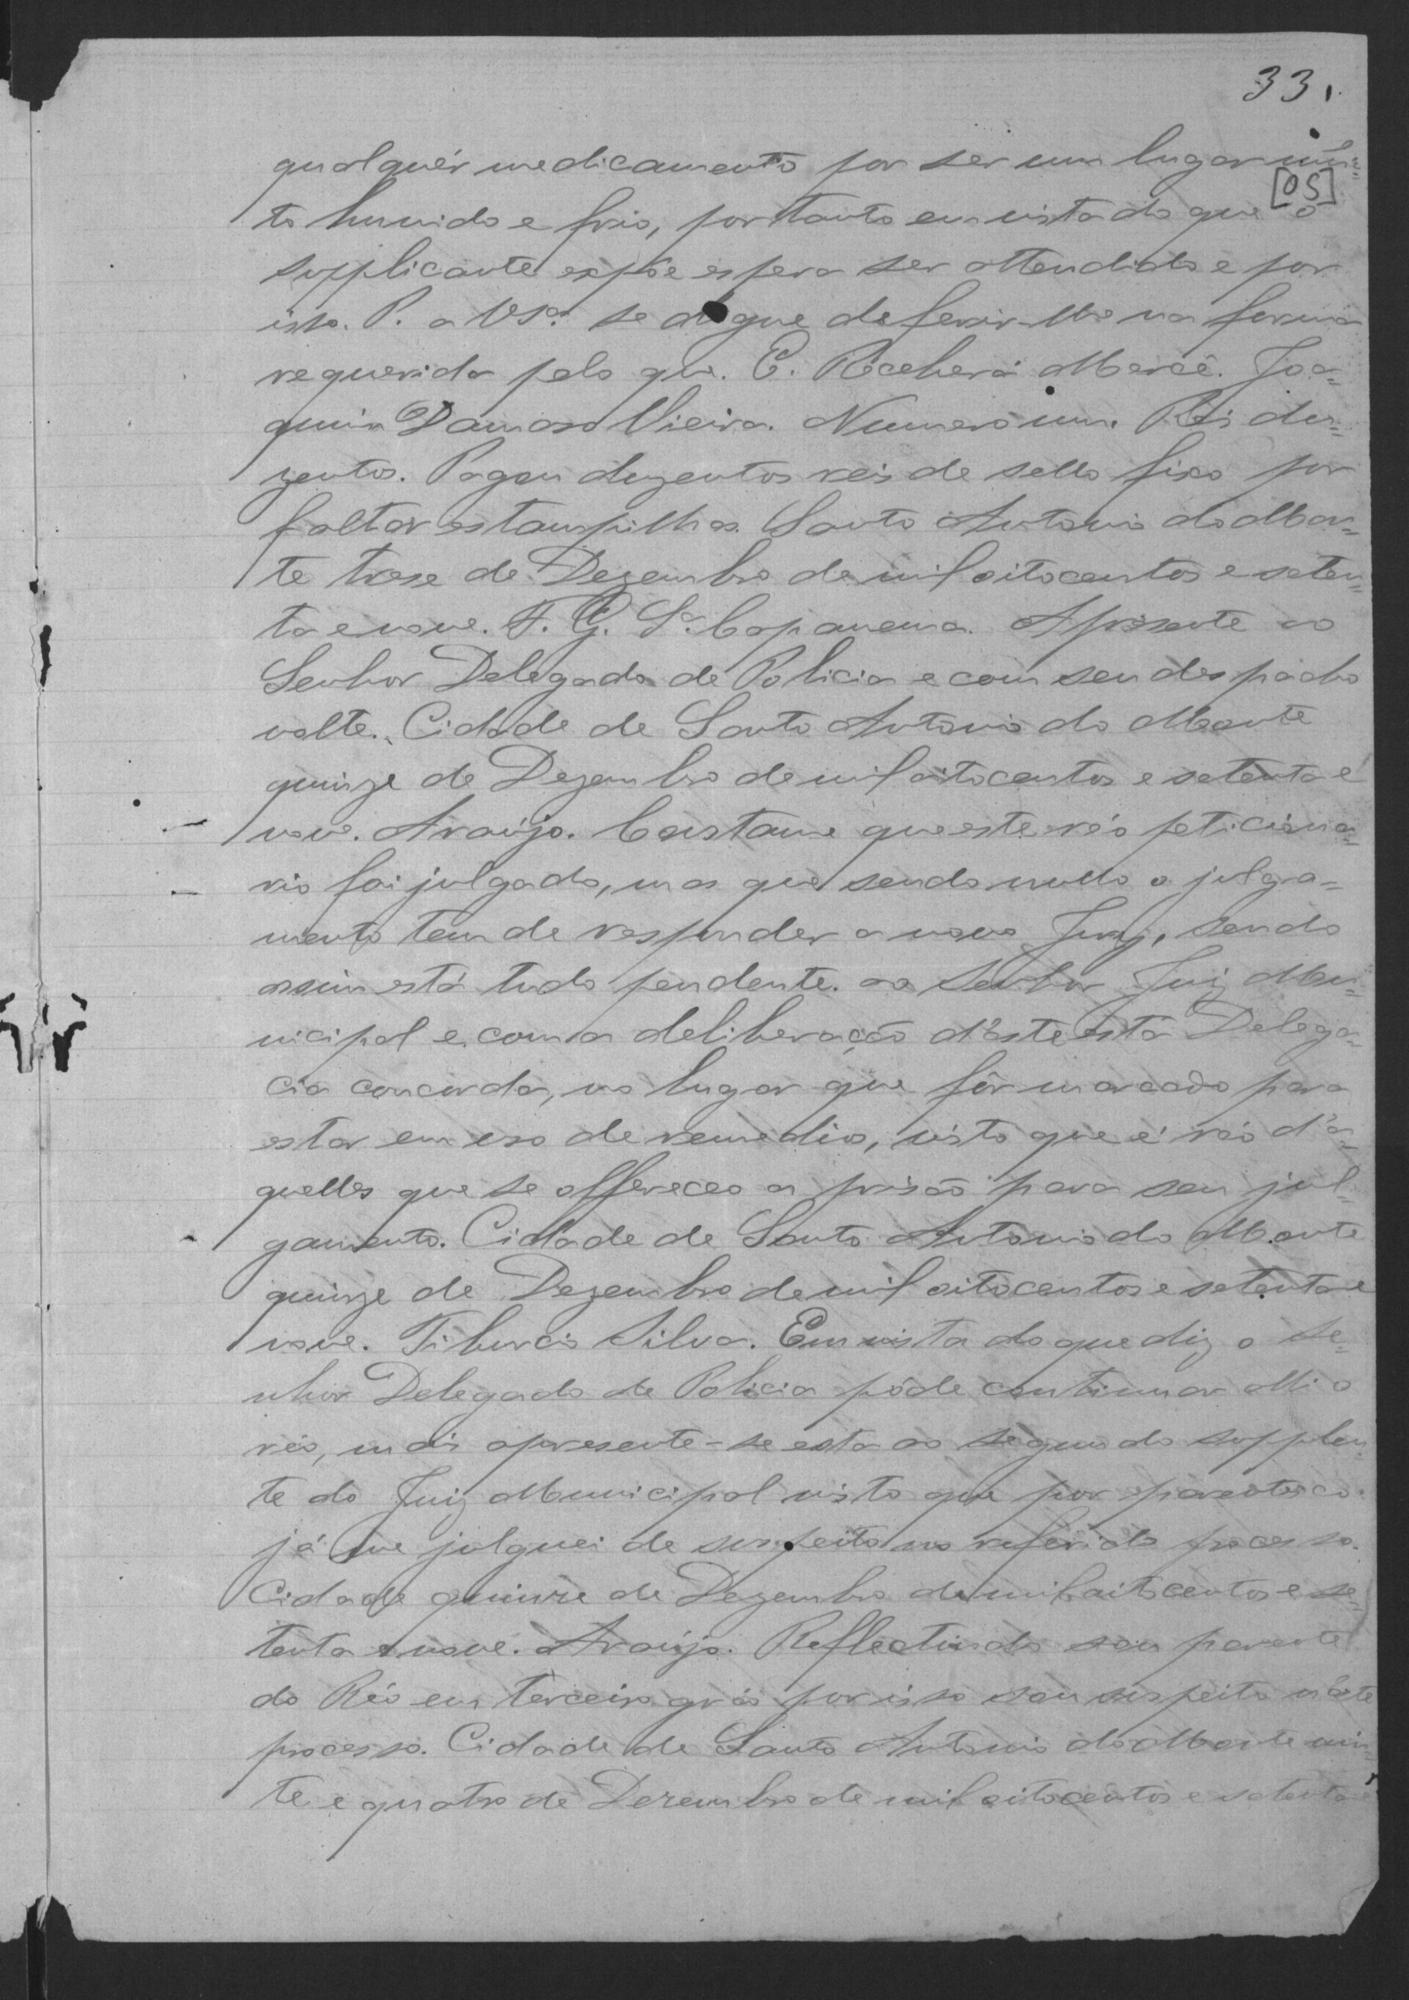 33.
qualquér medicamento por ser um lugar mui=
[05]
to humido e frio, por tanto em vista do que o
supplicante expõe espera ser attendido e por
isso. P. a VSª. se digne deferir-lhe na forma
requerida pelo que. E. Receberá Mercê. Joa=
quim Damaso Vieira. Numero um. Reis du=
zentos. Pagou duzentos reis de sello fixo por
faltar estampilhas. Santo Antonio do Mon=
te trese de Dezembro de mil oitocentos e seten=
ta e nove. F. G. Sª. Capanema. Apresente ao
Senhor Delegado de Policia e com seu despacho
volte. Cidade de Santo Antonio do Monte
quinze de Dezembro de mil oitocentos e setenta e
nove. Araújo. Constame que este réo peticiona=
rio foi julgado, mas que sendo nullo o julga=
mento tem de responder a novo Jury, sendo
assim está tudo pendente. ao Senhor Juiz Mu=
nicipal e com a deliberação d'este esta Delega=
cia concorda, no lugar que fôr marcado para
estar em uso de remedios, visto que é réo d'a=
quelles que se offereceo a prisão para seu jul=
gamento. Cidade de Santo Antonio do Monte
quinze de Dezembro de mil oitocentos e setenta e
nove. Tiburcio Silva. Em vista do que diz o Se=
nhor Delegado de Policia póde continuar alli o
réo, mais apresente-se esta ao segundo supplen=
te do Juiz Municipal visto que por parentesco
já me julguei de suspeito no referido processo.
Cidade quinze de Dezembro de mil oitocentos e se=
tenta e nove. Araújo. Reflectindo sou parente
do Réo em terceiro gráo por isso sou suspeito n'este
processo. Cidade de Santo Antonio do Monte vin=
te e quatro de Dezembro de mil oitocentos e setenta e